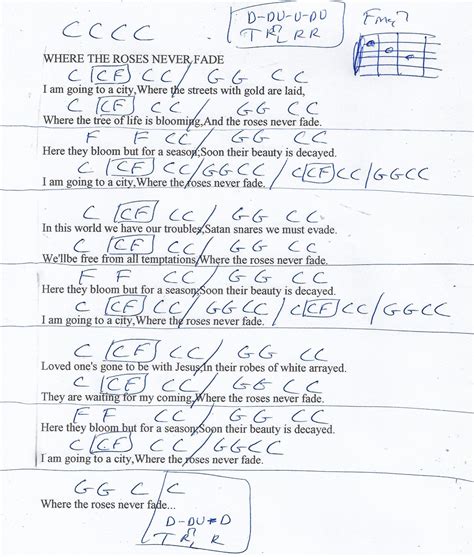 C C C C
D-DU-U-DU
T R L R R
Fmaj7
WHERE THE ROSES NEVER FADE
C CF C C / G G C C
I am going to a city,Where the streets with gold are laid,
C CF C C / G G C C
Where the tree of life is blooming,And the roses never fade.
F F C C / G G C C
Here they bloom but for a season;Soon their beauty is decayed.
C CF CC / GGCC / C CF CC / GGCC
I am going to a city,Where the roses never fade.
C CF CC / GG CC
In this world we have our troubles,Satan snares we must evade.
C CF CC / GG CC
We'llbe free from all temptations,Where the roses never fade.
F F CC / GG CC
Here they bloom but for a season;Soon their beauty is decayed.
C CF CC / GGCC / C CF CC / GGCC
I am going to a city,Where the roses never fade.
C CF CC / GG CC
Loved one's gone to be with Jesus,In their robes of white arrayed.
C CF CC / GG CC
They are waiting for my coming,Where the roses never fade.
F F CC / GG CC
Here they bloom but for a season;Soon their beauty is decayed.
C CF CC / GGCC
I am going to a city,Where the roses never fade.
G G C C
Where the roses never fade...
D-DU-D
T R L R